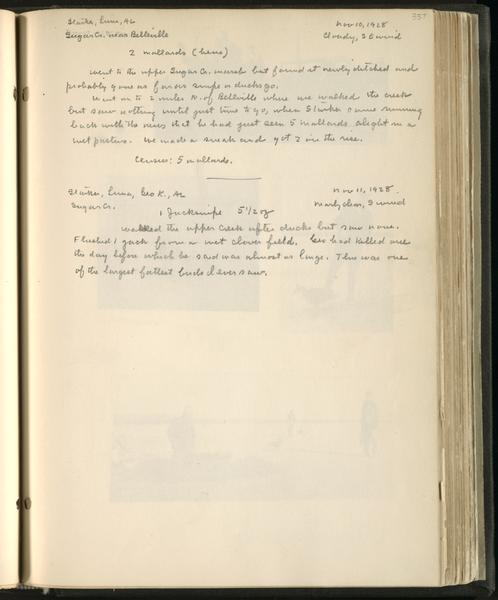 337
Starker, Luna, AL Nov 10, 1928
Sugar Cr. near Belleville Cloudy, S E wind
2 mallards (hens)
Went to the upper Sugar Cr. marsh but found it newly ditched and
probably gone as far as snipe or ducks go.
Went on to 2 miles N. of Belleville where we walked the creek
but saw nothing until just time to go, when Starker came running
back with the news that he had just seen 5 mallards alight in a
wet pasture. We made a sneak and got 2 in the rise.
Census: 5 mallards.
Starker, Luna, Geo K., AL Nov 11, 1928.
Sugar Cr. Nearly clear, S wind
1 Jacksnipe 5 1/2 oz
Walked the upper creek after ducks but saw none.
Flushed 1 jack from a wet clover field. Geo had killed one
the day before which he said was almost as large. This was one
of the largest fattest birds I ever saw.